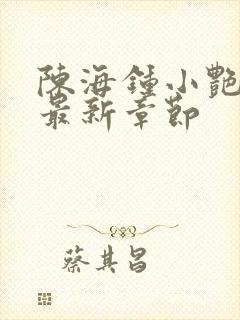 陳海鍾小艷
最新章節
蔡其昌